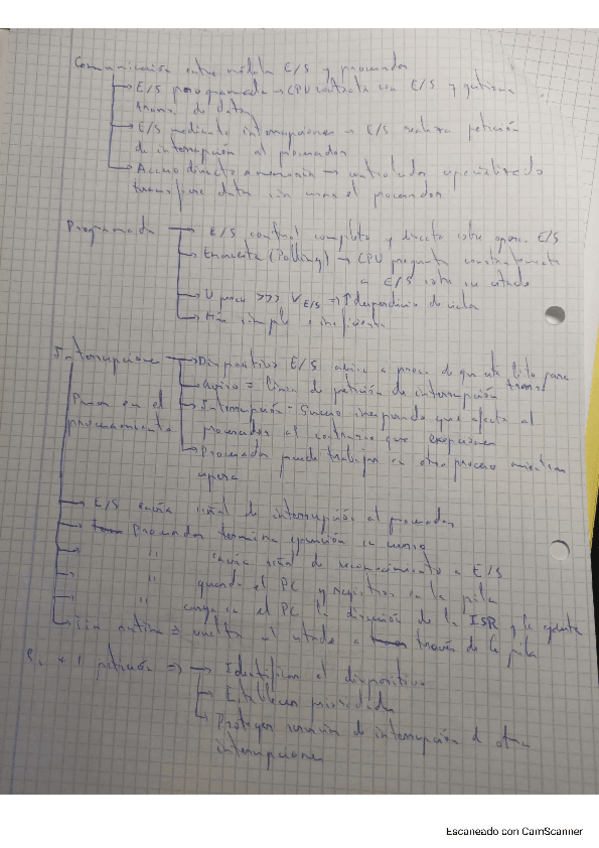 Comunicación entre módulo E/S y procesador
E/S programada → CPU contacta con E/S y gestiona
trans. de datos
E/S mediante interrupciones → E/S realiza petición
de interrupción al procesador
Acceso directo a memoria → controlador especializado
transfiere datos sin usar el procesador
Programada → E/S control completo y directo sobre opera. E/S
Encuesta (Polling) → CPU pregunta constantemente
a E/S sobre su estado
V proce >>> V E/S ⇒ ↑ desperdicio de ciclos
Más simple e ineficiente
Interrupciones → Dispositivo E/S avisa a proce. de que está listo para
trans.
Aviso = línea de petición de interrupción
Interrupción = Suceso inesperado que afecta al
Pasos en el
procesamiento
procesador al contrario que excepciones
Procesador puede trabajar en otro proceso mientras
espera
E/S envía señal de interrupción al procesador
Procesador termina ejecución en curso
" envía señal de reconocimiento a E/S
" guarda el PC y registros en la pila
" carga en el PC la dirección de la ISR y la ejecuta
Fin rutina ⇒ vuelta al estado a través de la pila
Si + 1 petición ⇒ → Identificar el dispositivo
Establecer prioridades
Proteger servicio de interrupción de otras
interrupciones
Escaneado con CamScanner